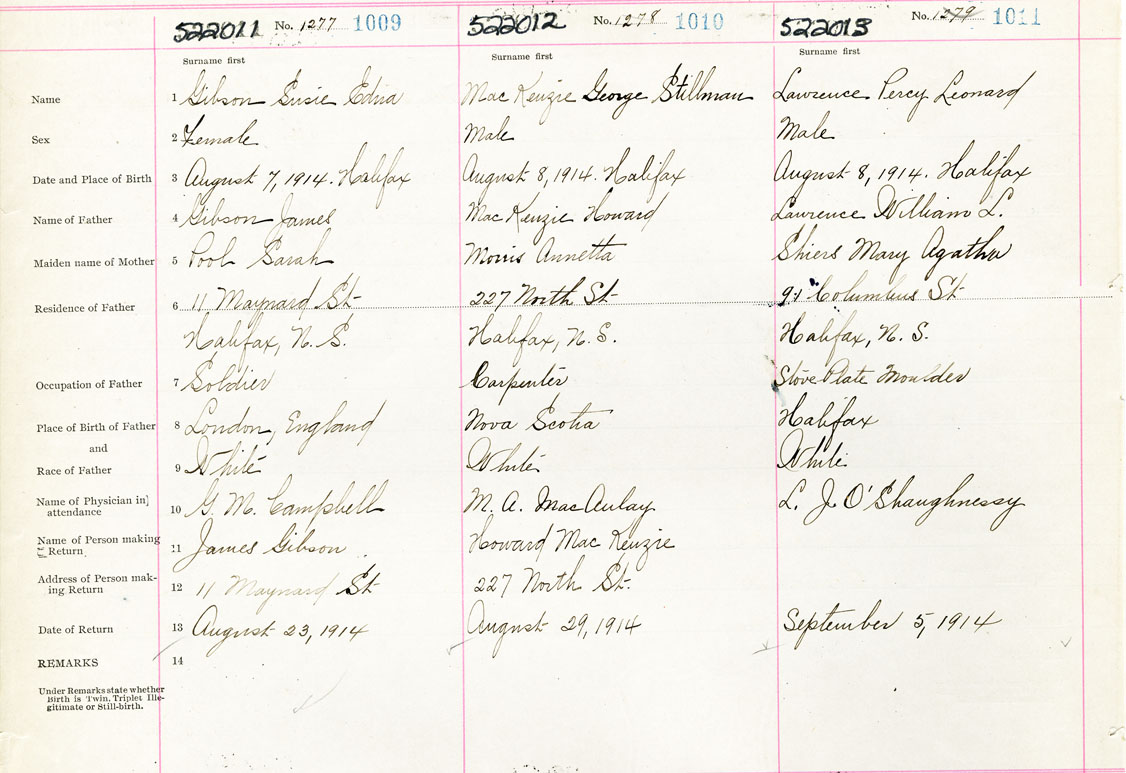 522011 No. 1277 1009 522012 No. 1278 1010 522013 No. 1279 1011
Surname first Surname first Surname first
Name 1 Gibson Susie Edna Mac Kenzie George Stillman Lawrence Percy Leonard
Sex 2 Female Male Male
Date and Place of Birth 3 August 7, 1914. Halifax August 8, 1914. Halifax August 8, 1914. Halifax
Name of Father 4 Gibson James Mac Kenzie Howard Lawrence William L.
Maiden name of Mother 5 Pool Sarah Morris Annetta Shiers Mary Agatha
Residence of Father 6 11 Maynard St 227 North St Columbus St
Halifax, N. S. Halifax, N. S. Halifax, N. S.
Occupation of Father 7 Soldier Carpenter Stove Plate Moulder
Place of Birth of Father 8 London, England Nova Scotia Halifax
and
Race of Father 9 White White White
Name of Physician in] attendance 10 G. M. Campbell M. A. MacAulay L. J. O'Shaughnessy
Name of Person making
Return 11 James Gibson Howard Mac Kenzie
Address of Person mak-
ing Return 12 11 Maynard St 227 North St.
Date of Return 13 August 23, 1914 August 29, 1914 September 5, 1914
REMARKS 14
Under Remarks state whether
Birth is Twin, Triplet Ille-
gitimate or Still-birth.